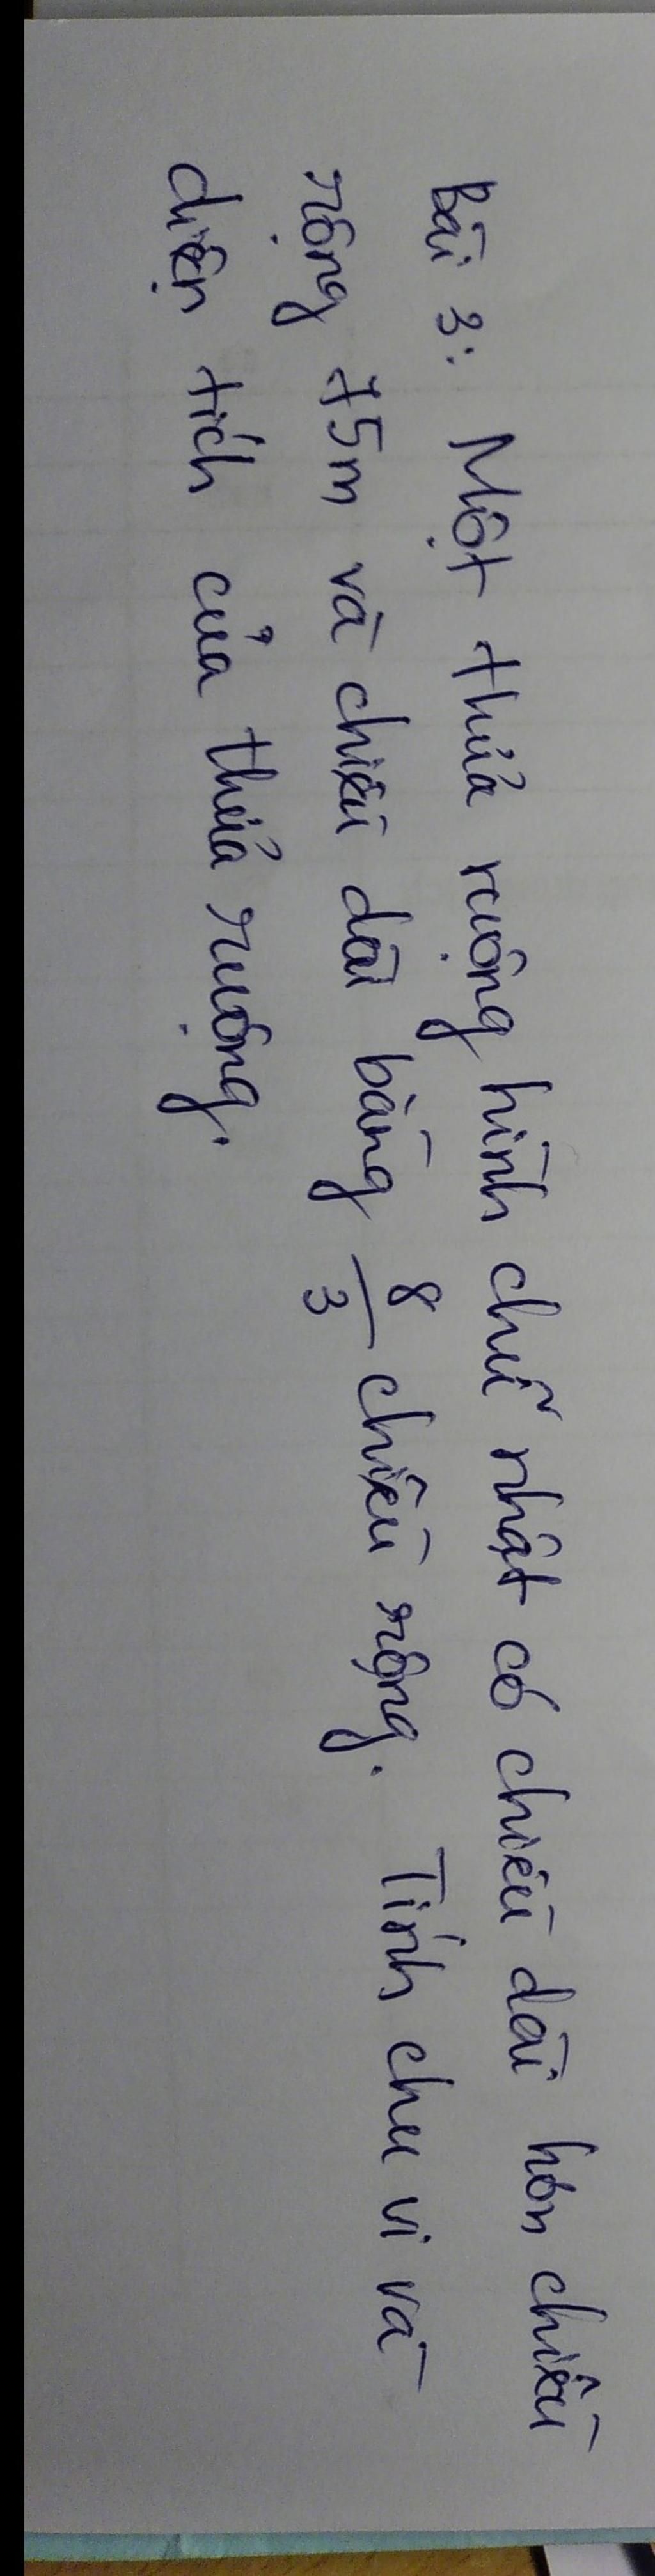 Bài 3: Một thửa ruộng hình chữ nhật có chiều dài hơn chiều
rộng 75m và chiều dài bằng 8/3 chiều rộng. Tính chu vi và
diện tích của thửa ruộng.